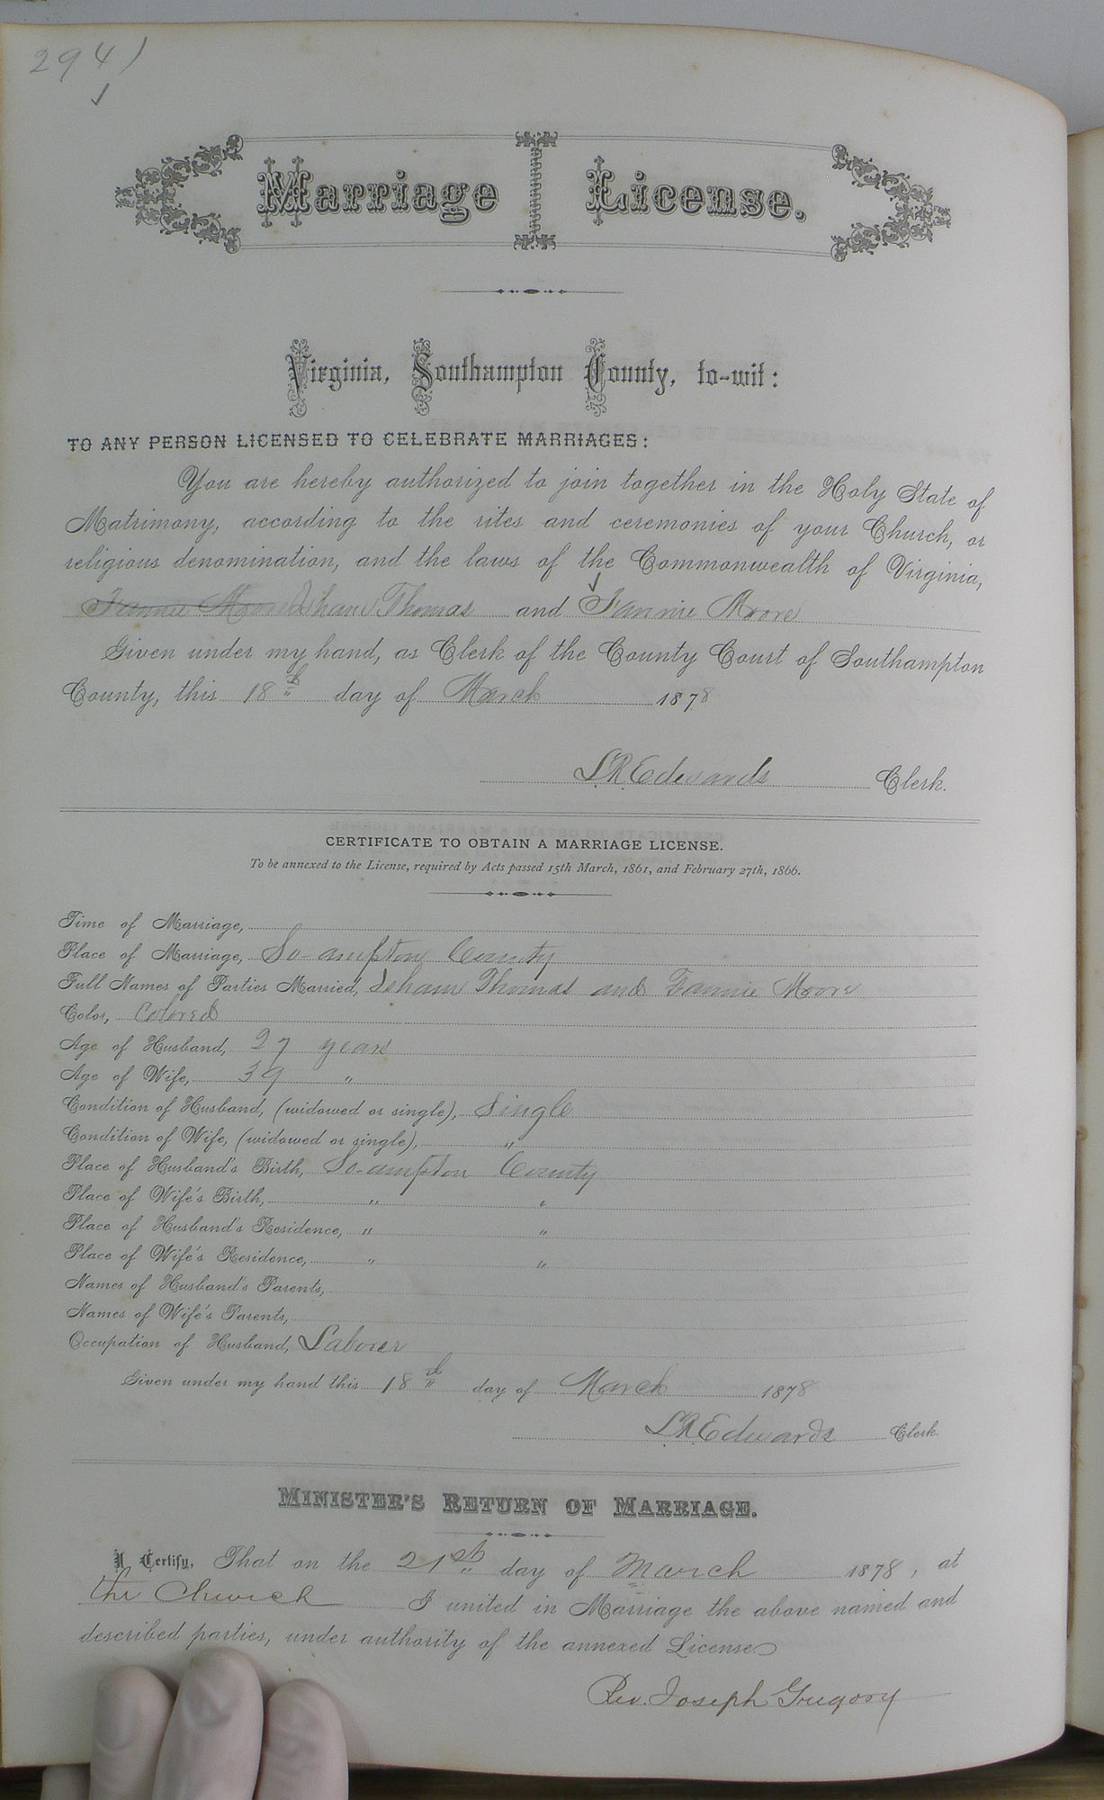 294)
Marriage License.
Virginia, Southampton County, to-wit:
TO ANY PERSON LICENSED TO CELEBRATE MARRIAGES:
You are hereby authorized to join together in the Holy State of
Matrimony, according to the rites and ceremonies of your Church, or
religious denomination, and the laws of the Commonwealth of Virginia,
Fannie Moore Isham Thomas and Fannie Moore
Given under my hand, as Clerk of the County Court of Southampton
County, this 18th day of March 1878
L.R. Edwards Clerk.
CERTIFICATE TO OBTAIN A MARRIAGE LICENSE.
To be annexed to the License, required by Acts passed 15th March, 1861, and February 27th, 1866.
Time of Marriage,
Place of Marriage, So-ampton County
Full Names of Parties Married, Isham Thomas and Fannie Moore
Color, Colored
Age of Husband, 27 years
Age of Wife, 39 "
Condition of Husband, (widowed or single), Single
Condition of Wife, (widowed or single), "
Place of Husband's Birth, So-ampton County
Place of Wife's Birth, " "
Place of Husband's Residence, " "
Place of Wife's Residence, " "
Names of Husband's Parents,
Names of Wife's Parents,
Occupation of Husband, Laborer
Given under my hand this 18th day of March 1878
L.R. Edwards Clerk.
MINISTER'S RETURN OF MARRIAGE.
I Certify, That on the 21st day of March 1878, at
the Church I united in Marriage the above named and
described parties, under authority of the annexed License
Rev. Joseph Gregory